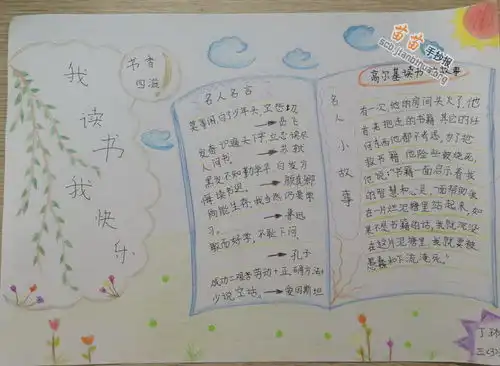 苗苗手抄报
我读书我快乐
书香
四溢
名人名言
莫等闲白了少年头,空悲切
→岳飞
发奋识遍天下字,立志读尽
人间书
→苏轼
黑发不知勤学早,白首方
悔读书迟。→颜真卿
倘能生存,我当然仍要学
习。→鲁迅
敏而好学,不耻下问。
→孔子
成功=艰苦劳动+正确方法+
少说空话。→爱因斯坦
名人小故事
高尔基读书
故事
有一次,他的房间失火了,他
首先抱走的书籍,其它的任
何东西他都不考虑。为了抢
救书籍,他险些被烧死。
他说:"书籍一面启示着我
的智慧和心灵,一面帮助我
在一片烂泥塘里站起来,如
果不是书籍的话,我就沉没
在这片泥塘里,我就要被
愚蠢和下流淹死。"
三(3)